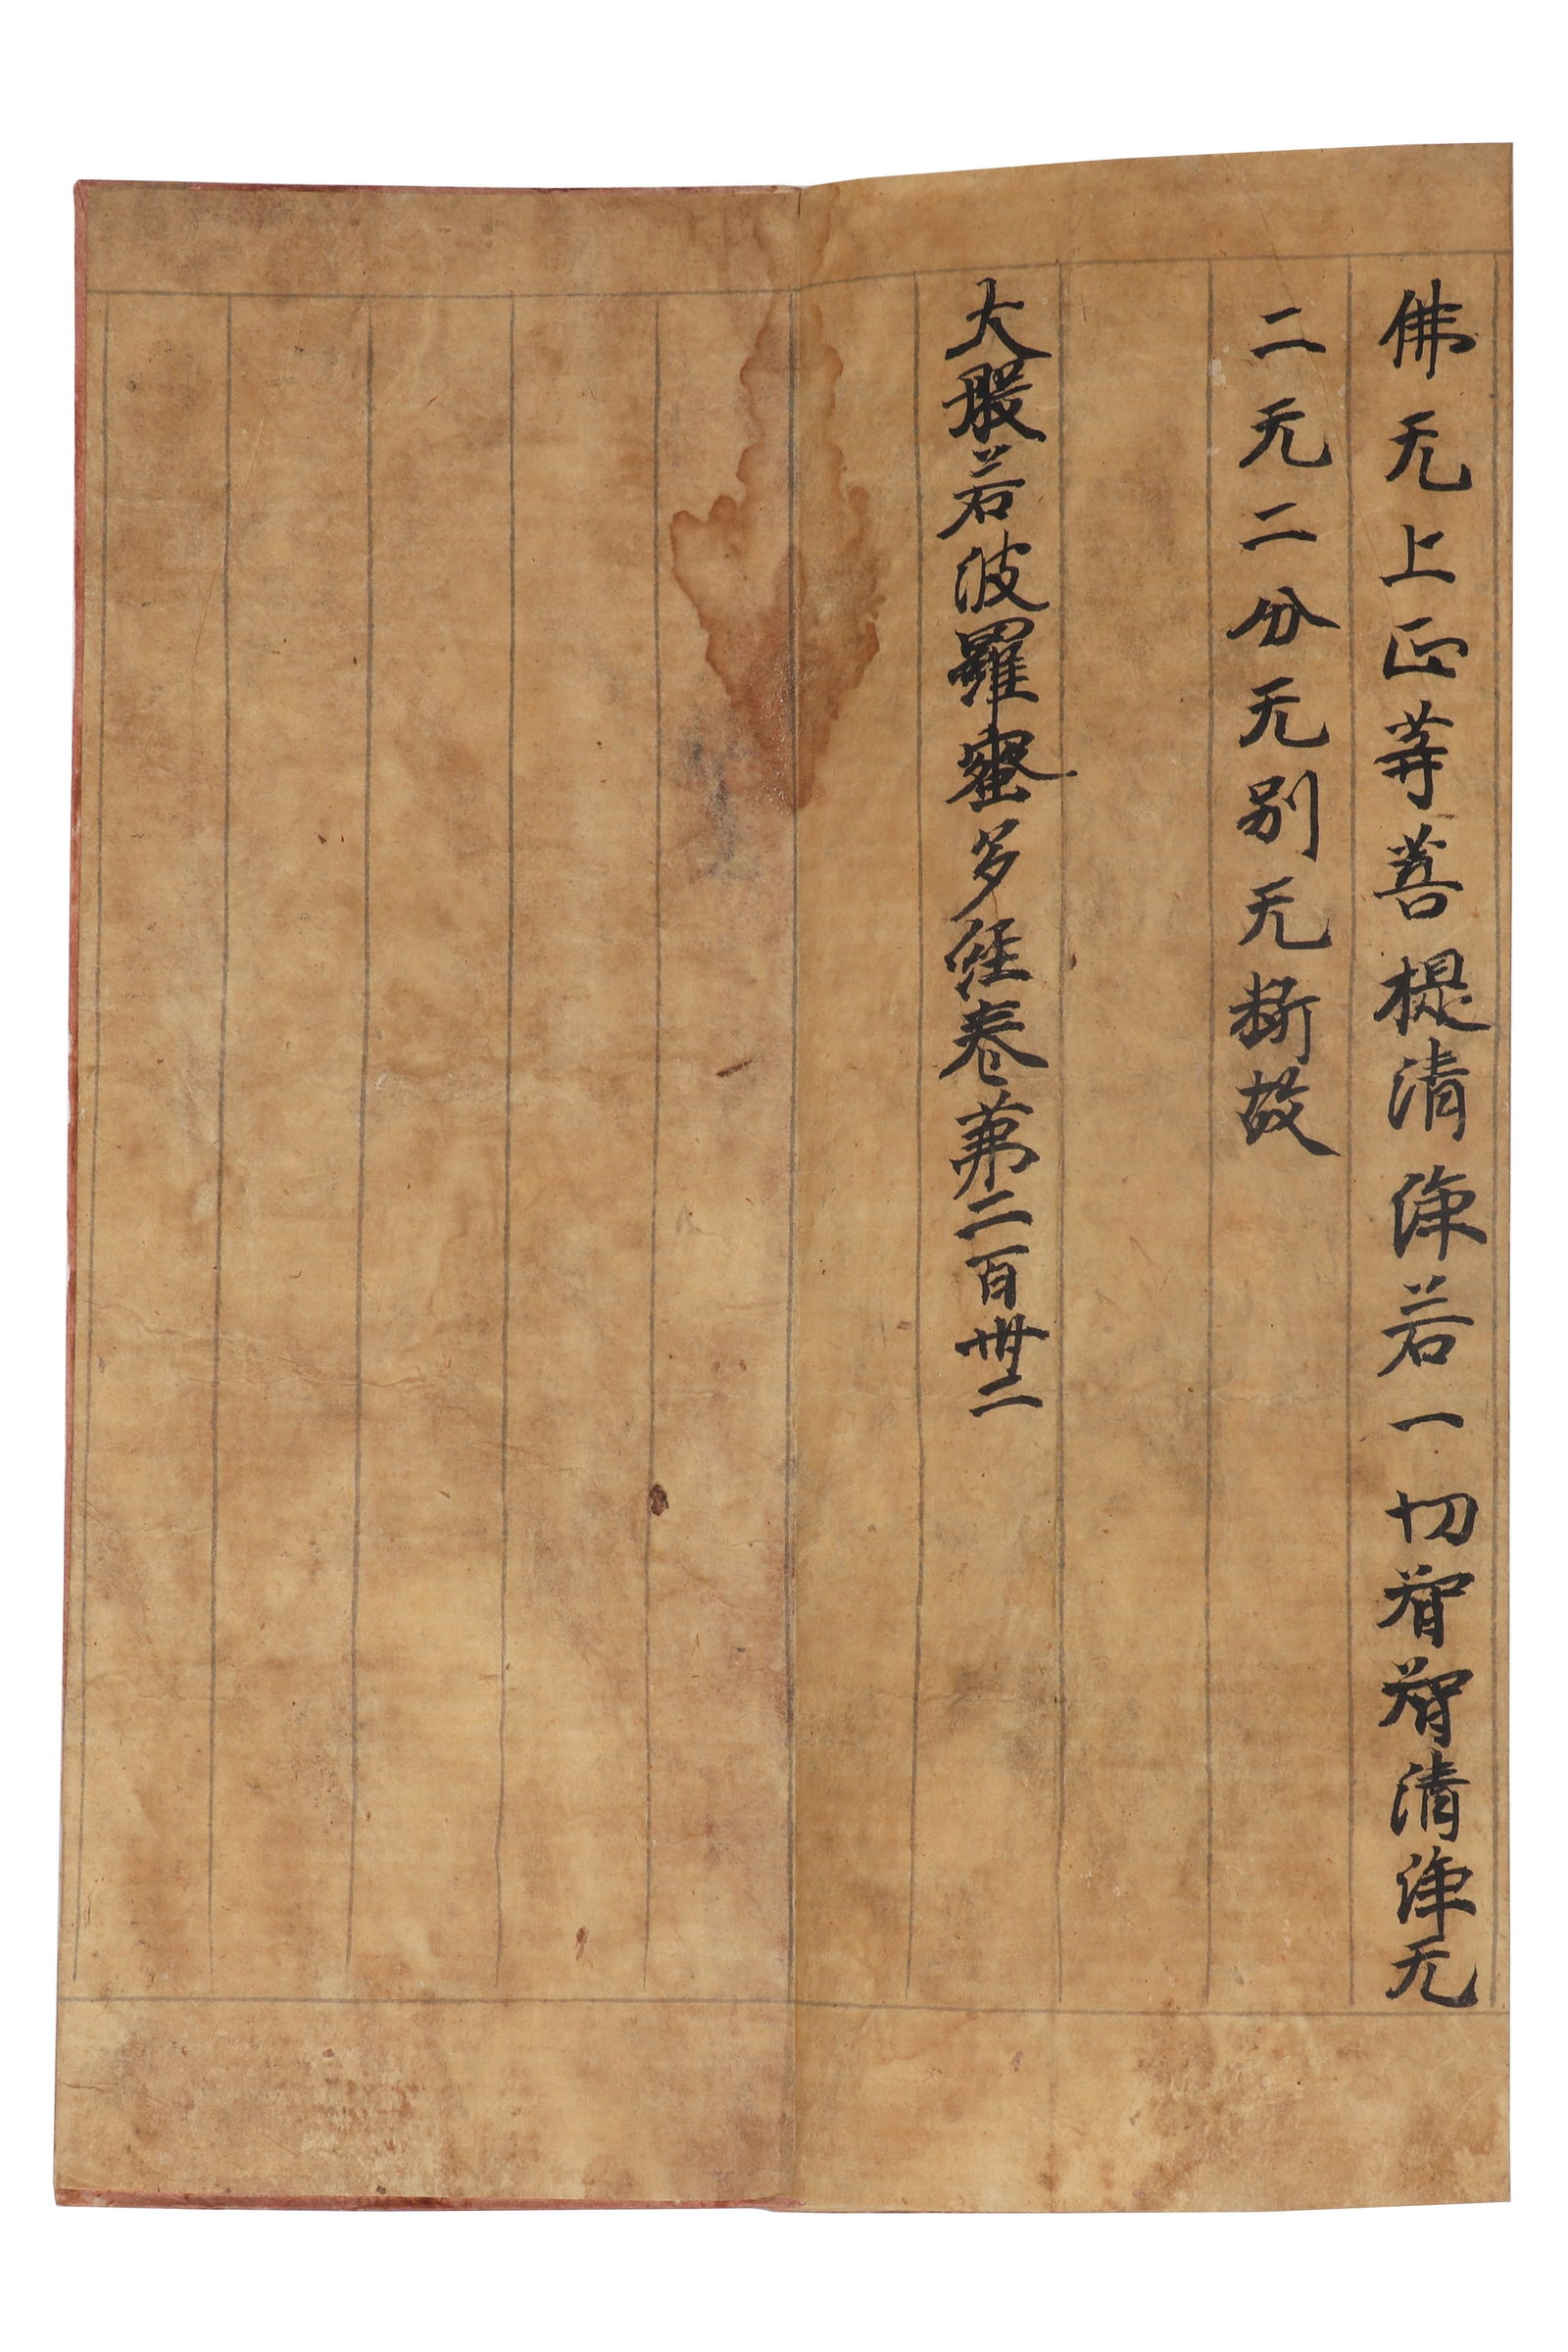 佛无上正等菩提清淨若一切智智清淨无
二无二分无别无斷故
大般若波羅蜜多經卷第二百卌二